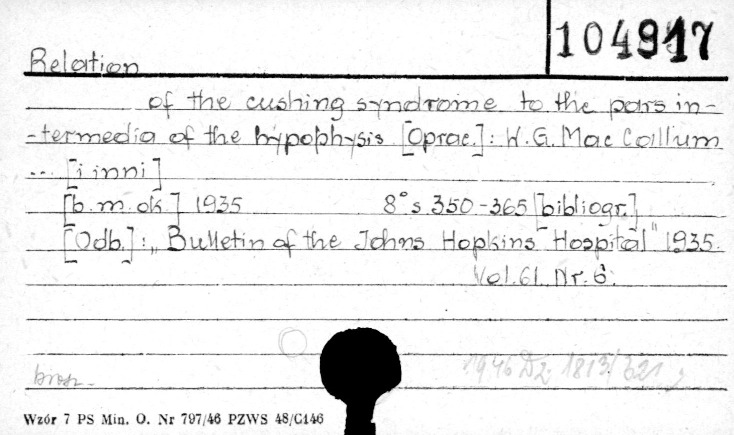 104917
Relation
of the cushing syndrome to the pars in-
-termedia of the hypophysis [Oprac.]: W.G. Mac Callum
... [i inni]
[b.m.ok] 1935 8° s. 350-365 [bibliogr.]
[Odb.]: „Bulletin of the Johns Hopkins Hospital" 1935.
Vol. 61. Nr. 6.
1946 Dz. 1813/321
brosz.
Wzór 7 PS Min. O. Nr 797/46 PZWS 48/G146